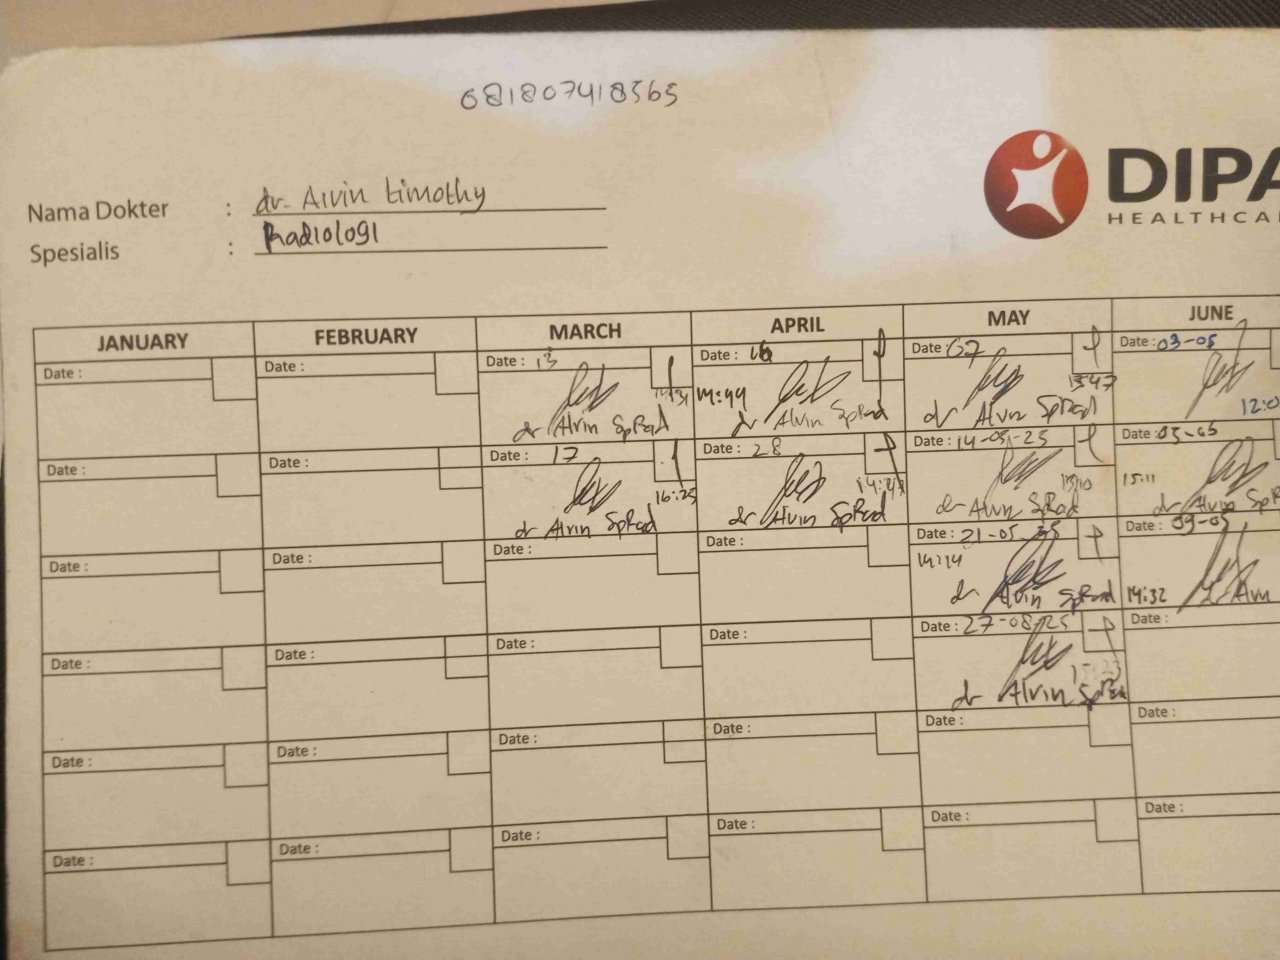 081807418565
DIPA
HEALTHCA
Nama Dokter : dr. Alvin timothy
Spesialis : Radiologi
JANUARY FEBRUARY MARCH APRIL MAY JUNE
Date : Date : Date : 13 Date : 16 Date : 07 Date : 03-05
14:44 13:47 12:0
dr Alvin SpRad dr Alvin SpRad dr Alvin SpRad
Date : Date : Date : 17 Date : 28 Date : 14-05-25 Date : 05-05
16:25 13:10 15:11
dr Alvin SpRad dr Alvin SpRad dr Alvin SpRad dr Alvin SpR
Date : Date : Date : Date : Date : 21-05-25 Date : 09-05
14:14 14:32
dr Alvin SpRad Alvin
Date : Date : Date : Date : Date : 27-08-25 Date :
15:23
dr Alvin SpRad
Date : Date : Date : Date : Date : Date :
Date : Date : Date : Date : Date : Date :